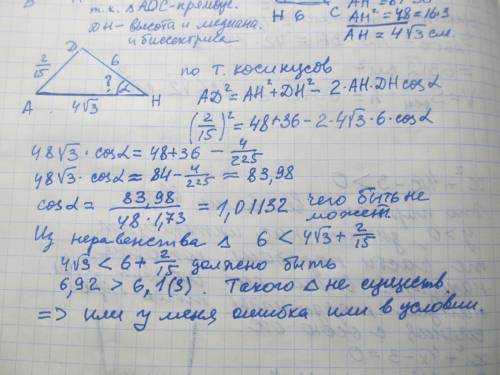 т.к. △ ADC - прямоуг.
DH - высота и медиана.
и биссектриса
H 6 C
AH² = 48 = 16·3
AH = 4√3 см.
D
2/15 6
? α
A 4√3 H
по т. косинусов
AD² = AH² + DH² - 2·AH·DH cosα
(2/15)² = 48 + 36 - 2·4√3·6·cosα
48√3 · cosα = 48 + 36 - 4/225
48√3 · cosα = 84 - 4/225 = 83,98
cosα = 83,98 / 48·1,73 = 1,01132 чего быть не может
Из неравенства △ 6 < 4√3 + 2/15
4√3 < 6 + 2/15 должно быть
6,92 > 6,1(3). Такого △ не существ.
=> или у меня ошибка или в условии.